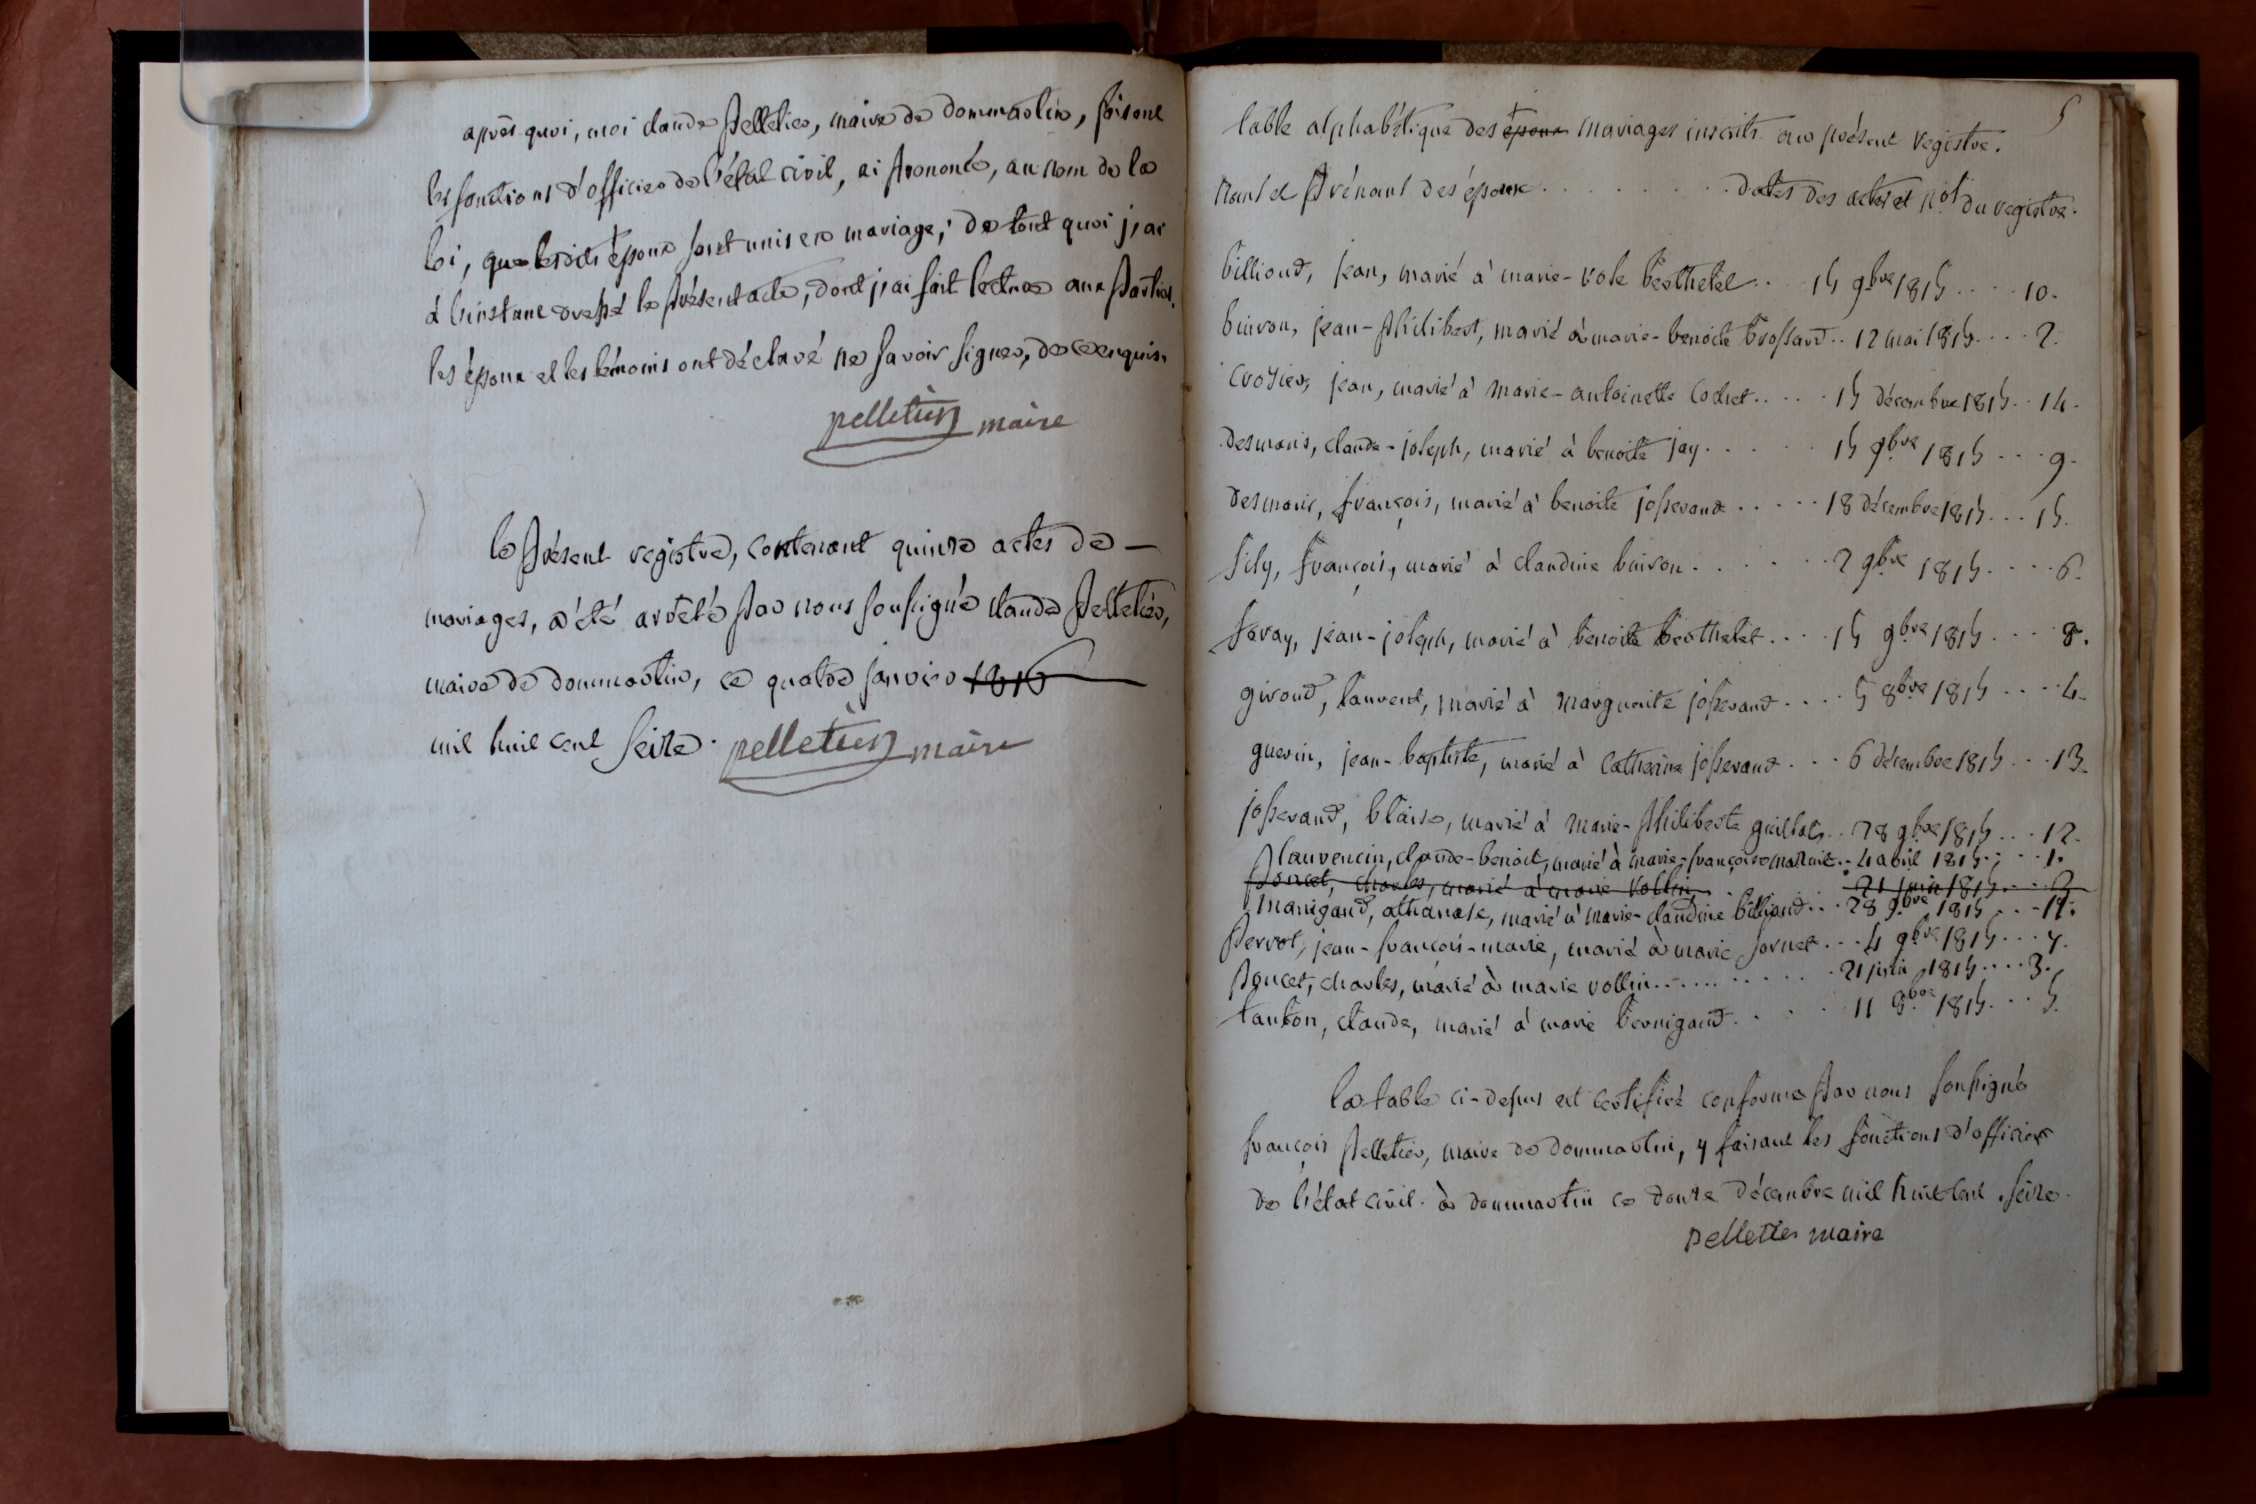 après quoi, moi claude pelletier, maire de dommartin, faisant
les fonctions d'officier de l'état civil, ai prononcé, au nom de la
loi, que lesdits époux sont unis en mariage; de tout quoi j'ai
à l'instant dressé le présent acte, dont j'ai fait lecture aux parties.
les époux et les témoins ont déclaré ne savoir signer, de ce enquis.
pelletier maire
le présent registre, contenant quinze actes de —
mariages, a été arrêté par nous soussigné claude pelletier,
maire de dommartin, ce quatre janvier 1816
mil huit cent seize. pelletier maire
5
table alphabétique des époux mariages inscrits au présent registre.
noms et prénoms des époux . . . . . . . . dates des actes et nos du registre.
billioud, jean, marié à marie-rose berthelet . . 15 9bre 1815 . . . . 10.
buiron, jean-philibert, marié à marie-benoite brossard . . 12 mai 1815 . . . . 2.
croyier, jean, marié à marie-antoinette cochet . . . . 15 décembre 1815 . . 14.
desmaris, claude-joseph, marié à benoite jay . . . . . . 15 9bre 1815 . . . 9.
desmaris, françois, marié à benoite josserand . . . . . 18 décembre 1815 . . . 15.
fily, françois, marié à claudine buiron . . . . . . 2 9bre 1815 . . . . 6.
favay, jean-joseph, marié à benoite berthelet . . . . 15 9bre 1815 . . . . 8.
giroud, laurent, marié à marguerite josserand . . . . 5 8bre 1815 . . . . 4.
guerin, jean-baptiste, marié à catherine josserand . . . 6 décembre 1815 . . . 13.
josserand, blaise, marié à marie-philiberte guillat . . 28 9bre 1815 . . . . 12.
lauvencin, claude-benoit, marié à marie-françoise mathuit . . 4 avril 1815 . . . . 1.
poncet, charles, marié à marie vollin . . . . 21 juin 1815 . . . . 3
manigaud, athanase, marié à marie-claudine billioud . . . 28 9bre 1815 . . . 11.
perrot, jean-françois-marie, marié à marie fornet . . . 4 9bre 1815 . . . 7.
poncet, charles, marié à marie vollin . . . . . . . . . . 21 juin 1815 . . . . 3.
tanton, claude, marié à marie bernigaud . . . . . 11 8bre 1815 . . . 5.
la table ci-dessus est certifiée conforme par nous soussigné
françois pelletier, maire de dommartin, y faisant les fonctions d'officier
de l'état civil. à dommartin ce douze décembre mil huit cent seize.
pelletier maire